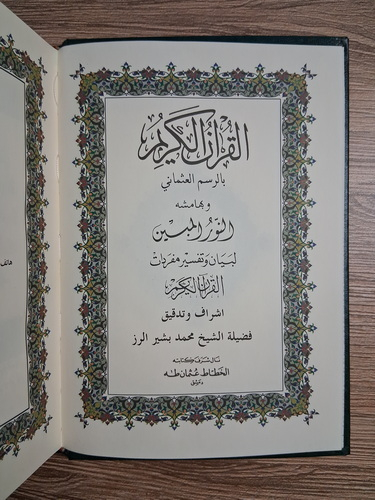 القرآن الكريم
بالرسم العثماني
وبهامشه
النور المبين
لبيان وتفسير مفردات
القرآن الكريم
اشراف وتدقيق
فضيلة الشيخ محمد بشير الرز
نال شرف كتابته
الخطاط عثمان طه
هاتف